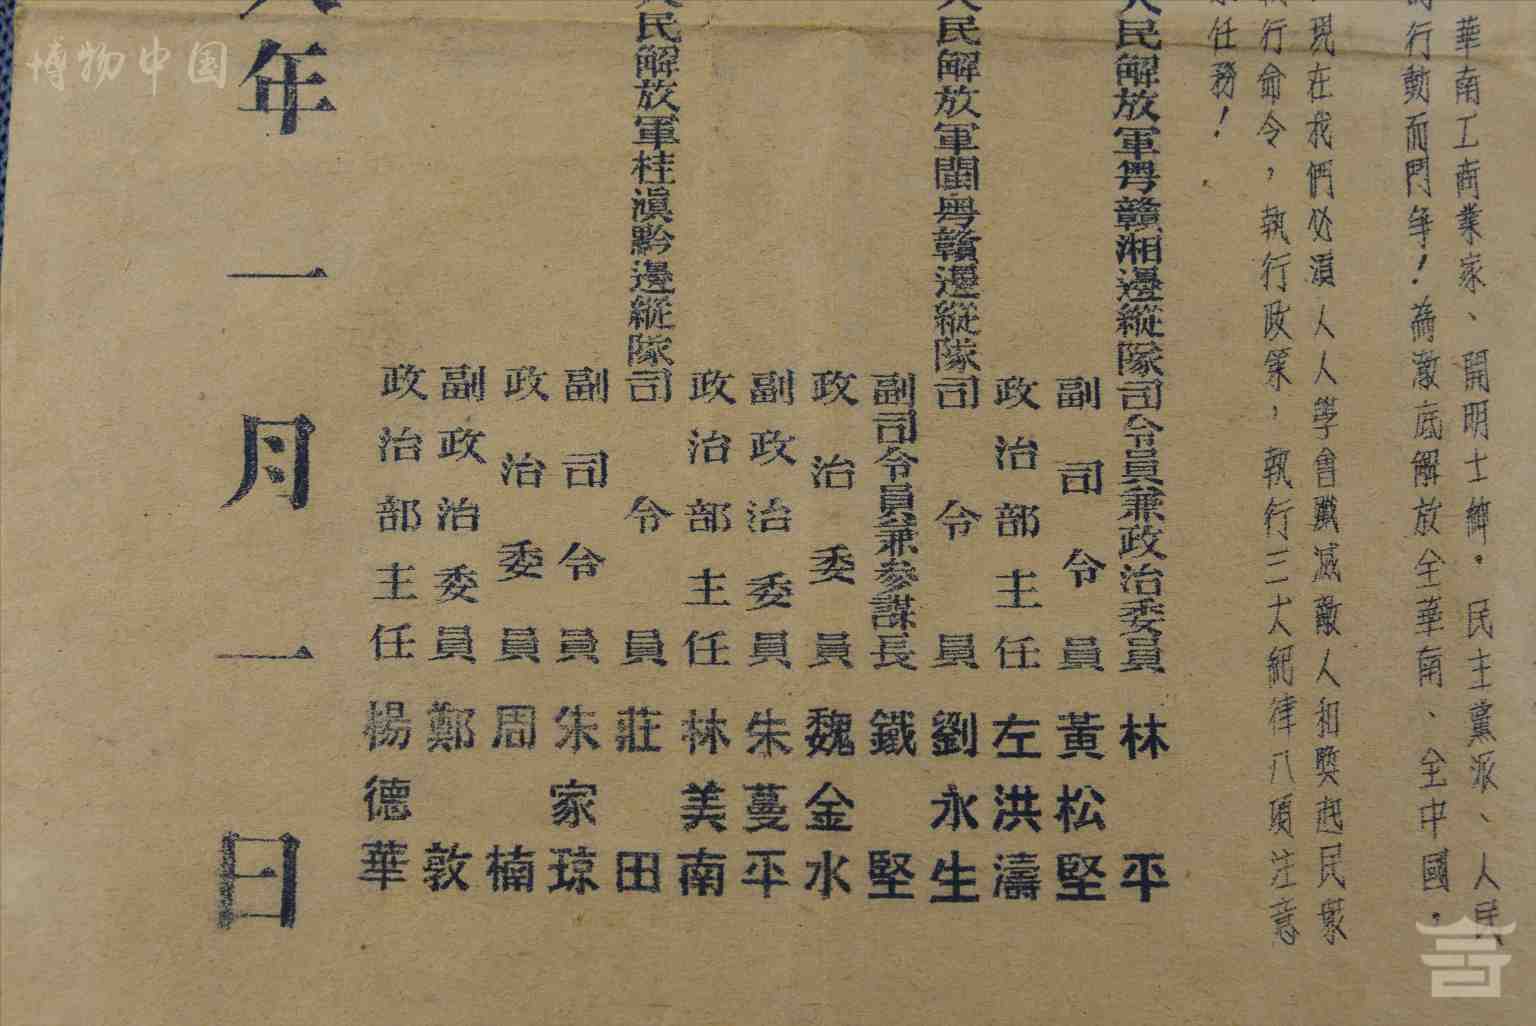 華南工商業家、開明士紳。民主黨派、人民
行動而鬥爭！為澈底解放全華南、全中國，
現在我們必須人人學會殲滅敵人和喚起民眾
行命令，執行政策，執行三大紀律八項注意
任務！
人民解放軍粵贛湘邊縱隊司令員兼政治委員林平
副司令員黃松堅
政治部主任左洪濤
人民解放軍閩粵贛邊縱隊司令員劉永生
副司令員兼參謀長鐵堅
政治委員魏金水
副政治委員朱蔓平
政治部主任林美南
人民解放軍桂滇黔邊縱隊司令員莊田
副司令員朱家琼
政治委員周楠
副政治委員鄭敦
政治部主任楊德華
年一月一日
博物中国